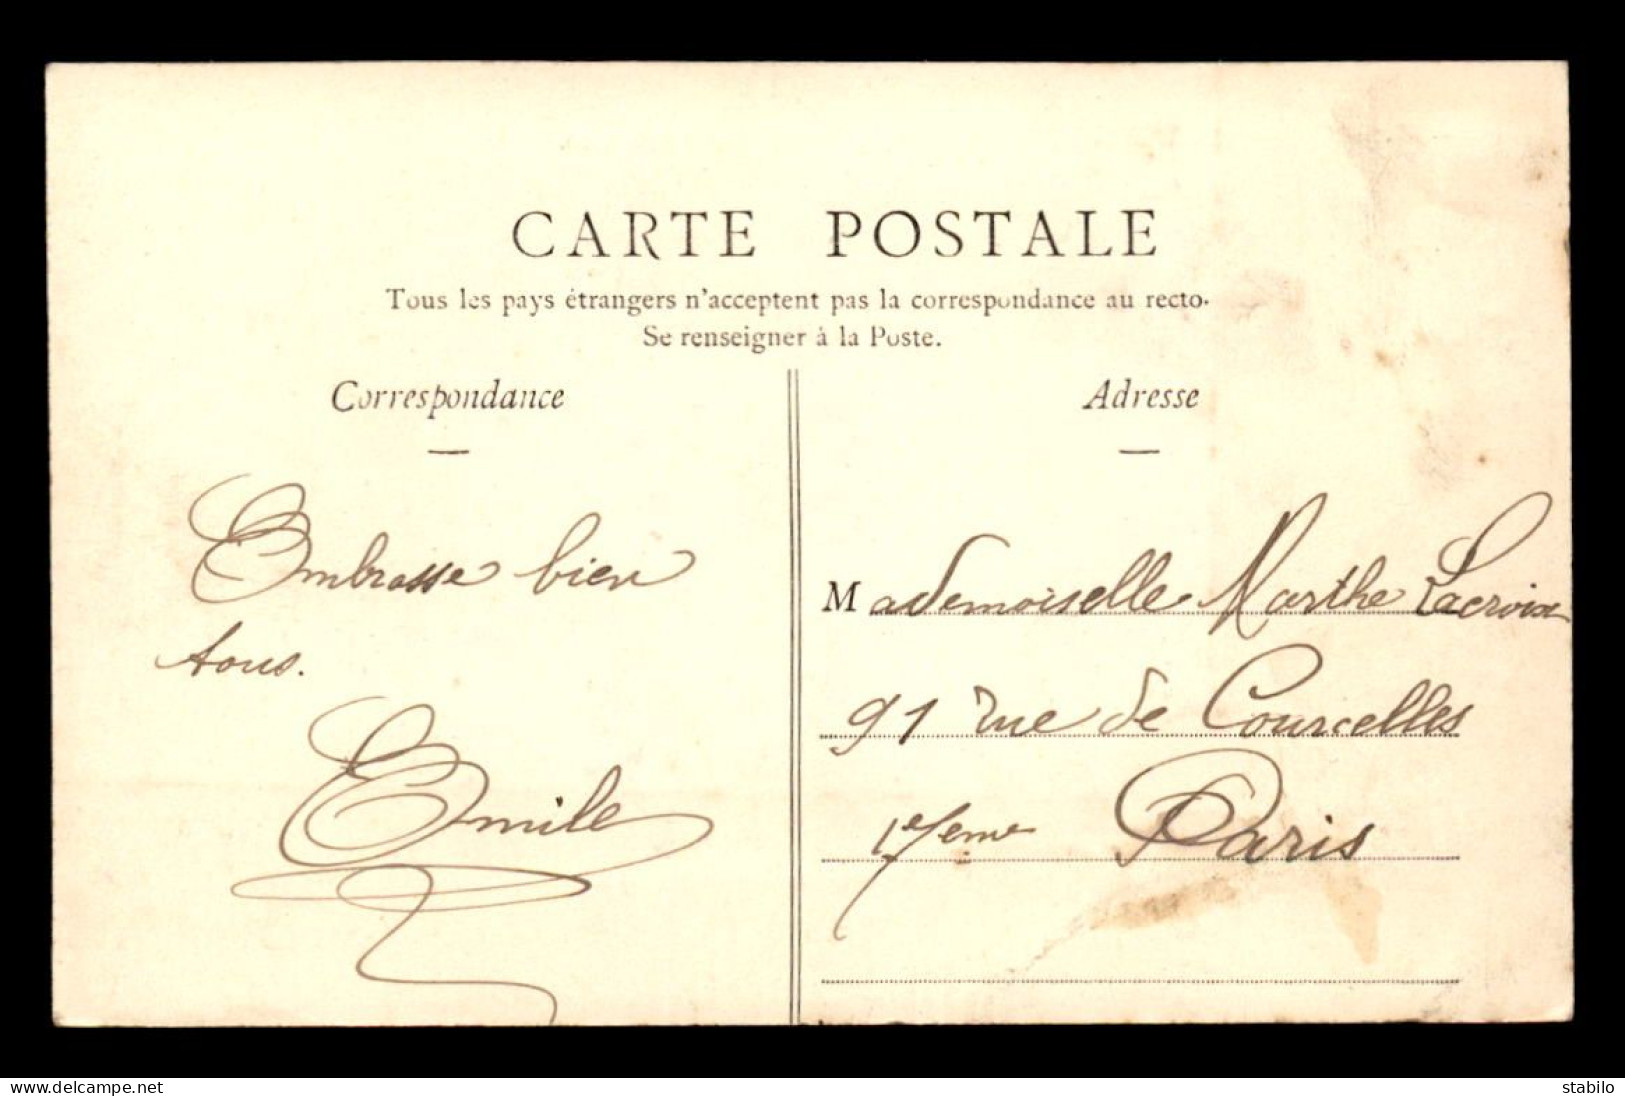 CARTE POSTALE
Tous les pays étrangers n'acceptent pas la correspondance au recto.
Se renseigner à la Poste.
Correspondance
Embrasse bien
tous.
Emile
Adresse
Mademoiselle Marthe Lacroix
91 rue de Courcelles
17eme Paris
www.delcampe.net
stabilo